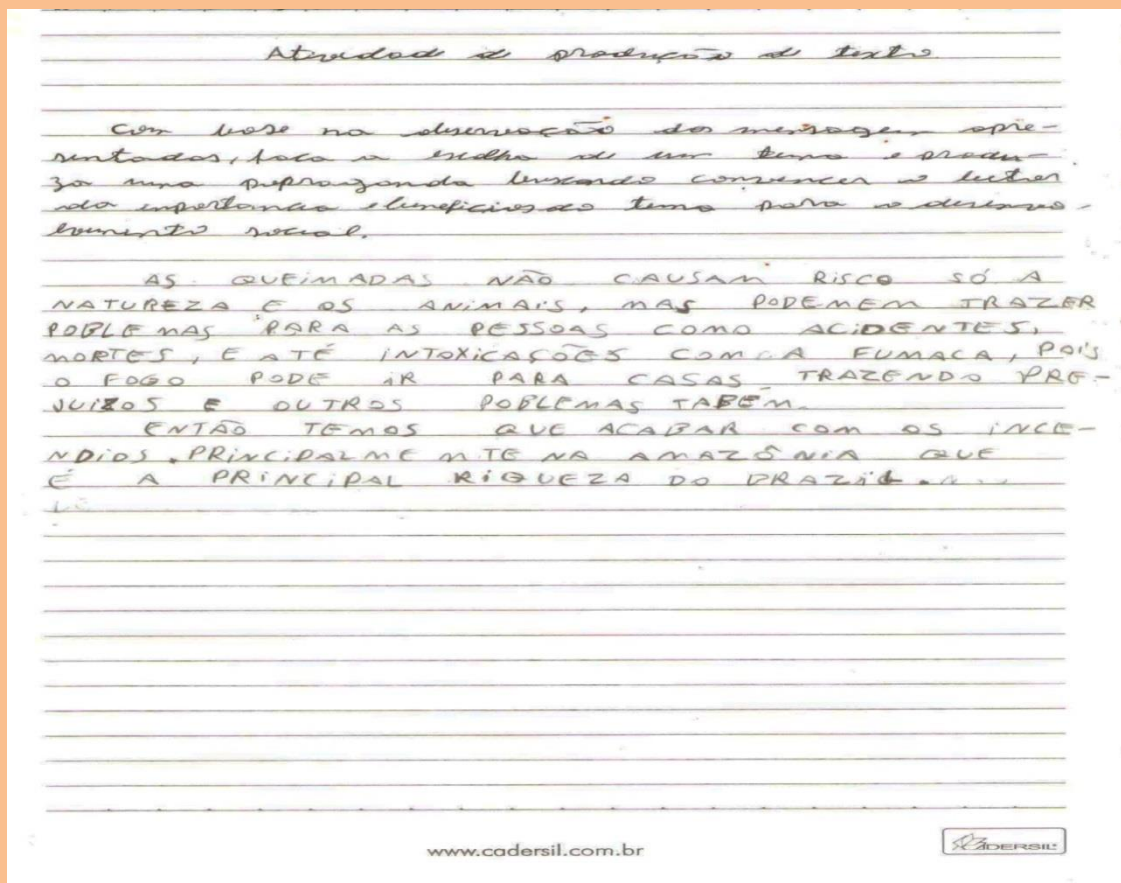 Atividade de produção de texto
Com base na observação das mensagem apre-
sentadas, faca a escolha de um tema e produ-
za uma propraganda buscando convencer o leitor
da importancia e beneficios do tema para o desenvo-
lvimento social.
AS QUEIMADAS NÃO CAUSAM RISCO SÓ A
NATUREZA E OS ANIMAIS, MAS PODEMEM TRAZER
POBLEMAS PARA AS PESSOAS COMO ACIDENTES,
MORTES, E ATÉ INTOXICASÕES COM A FUMACA, POIS
O FOGO PODE IR PARA CASAS TRAZENDO PRE-
JUIZOS E OUTROS POBLEMAS TABEM.
ENTÃO TEMOS QUE ACABAR COM OS INCE-
NDIOS. PRINCIPALMENTE NA AMAZÔNIA QUE
É A PRINCIPAL RIQUEZA DO BRAZIL.
www.cadersil.com.br
CADERSIL